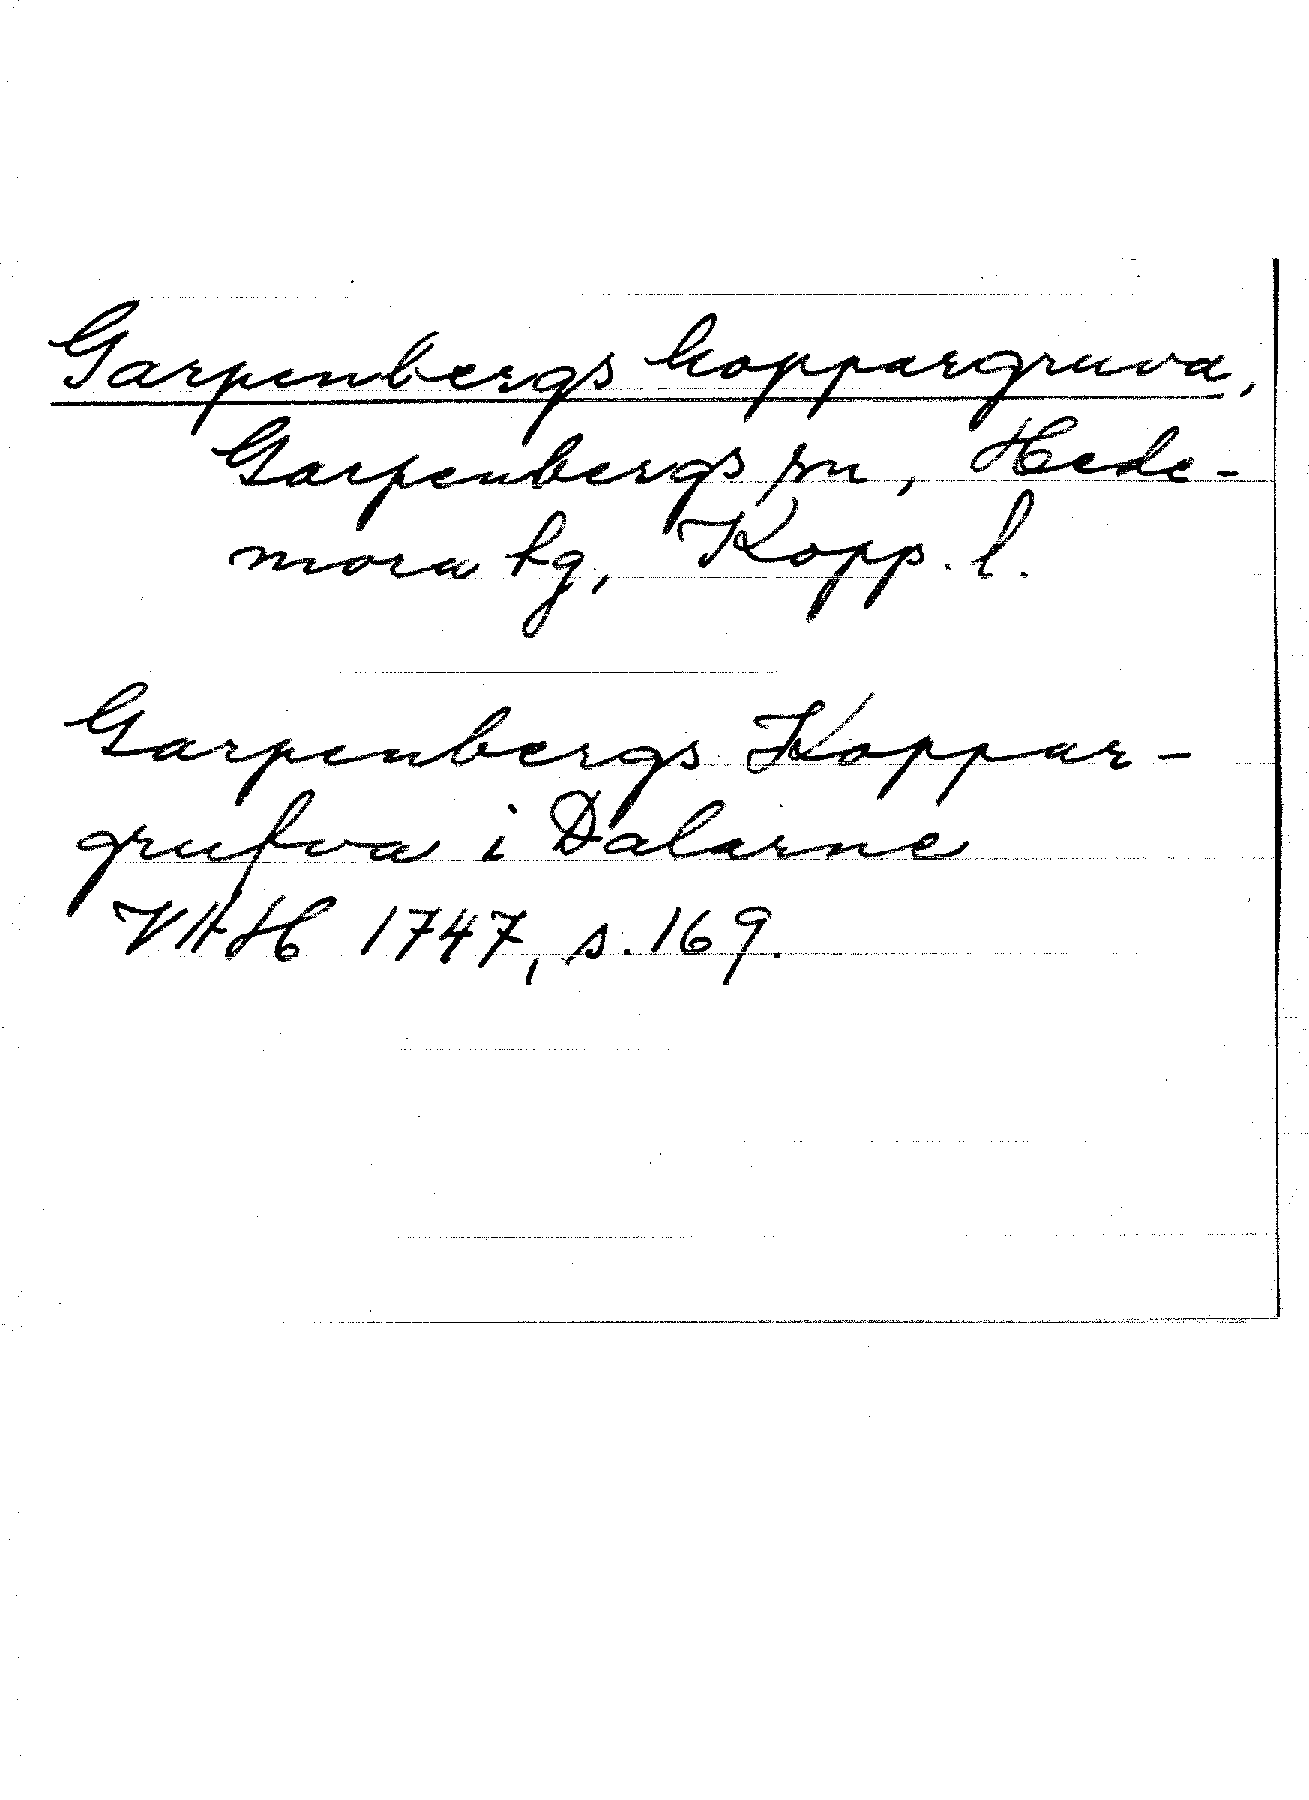 Garpenbergs koppargruva,
Garpenbergs sn, Hede-
mora tg, Kopp. l.
Garpenbergs Koppar-
grufva i Dalarne
VAH 1747, s. 169.